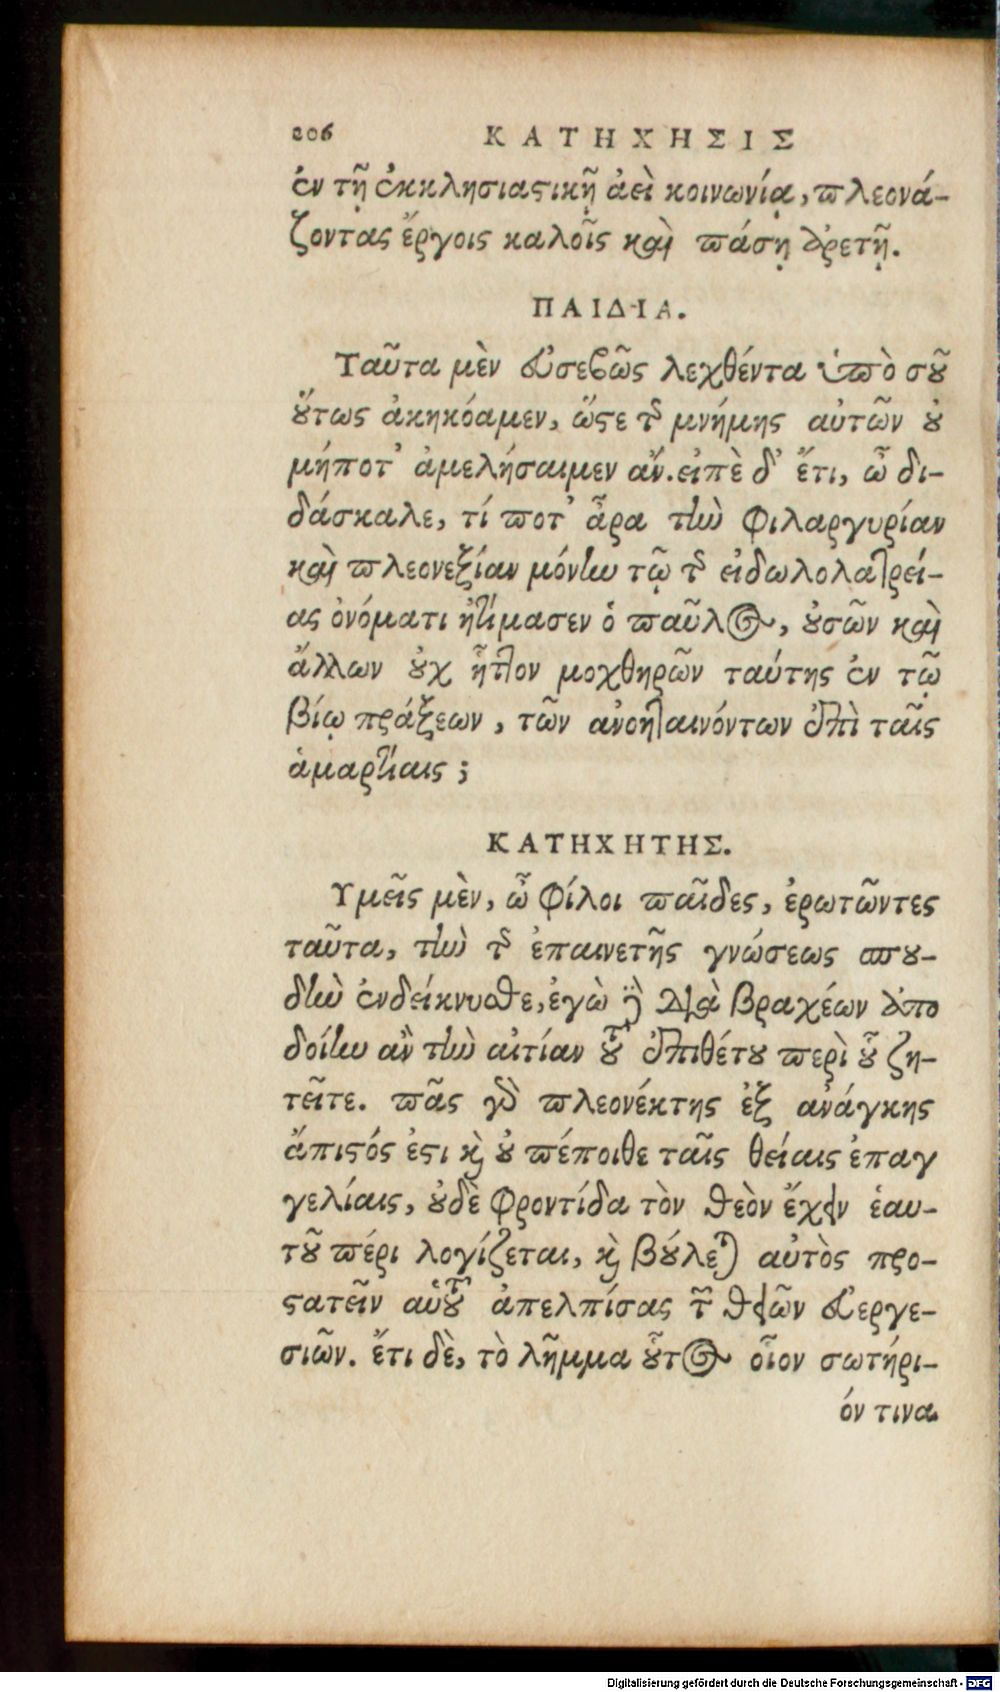 206 ΚΑΤΗΧΗΣΙΣ
ἐν τῇ ἐκκλησιαϛικῇ ἀεὶ κοινωνίᾳ, πλεονά-
ζοντας ἔργοις καλοῖς καὶ πάσῃ ἀρετῇ.
ΠΑΙΔΙΑ.
Ταῦτα μὲν εὐσεβῶς λεχθέντα ὑπὸ σȣ͂
ȣ῞τως ἀκηκόαμεν, ὥϛε τ͂ μνήμης αὐτῶν ȣ̓
μήποτ' ἀμελήσαιμεν ἄν. εἰπὲ δ' ἔτι, ὦ δι-
δάσκαλε, τί ποτ' ἆρα τὴν φιλαργυρίαν
καὶ πλεονεξίαν μόνην τῷ τ͂ εἰδωλολατρεί-
ας ὀνόματι ἠτίμασεν ὁ παῦλος, ȣ̓σῶν καὶ
ἄλλων ȣ̓χ ἧττον μοχθηρῶν ταύτης ἐν τῷ
βίῳ πράξεων, τῶν ἀνοηταινόντων ἐπὶ ταῖς
ἁμαρτίαις;
ΚΑΤΗΧΗΤΗΣ.
Υμεῖς μὲν, ὦ φίλοι παῖδες, ἐρωτῶντες
ταῦτα, τὴν τ͂ ἐπαινετῆς γνώσεως σπȣ-
δὴν ἐνδείκνυσθε, ἐγὼ δὲ διὰ βραχέων ἀπο
δοίην ἂν τὴν αἰτίαν τȣ͂ ἐπιθέτȣ περὶ ȣ͗͂ ζη-
τεῖτε. πᾶς γὰρ πλεονέκτης ἐξ ἀνάγκης
ἄπιϛός ἐϛι κ̀ ȣ̓ πέποιθε ταῖς θείαις ἐπαγ
γελίαις, ȣ̓δὲ φροντίδα τὸν θεὸν ἔχειν ἑαυ-
τȣ͂ πέρι λογίζεται, κ̀ βȣ́λεται αὐτὸς προ-
ϛατεῖν αὑτȣ͂ ἀπελπίσας τ͂ θείων εὐεργε-
σιῶν. ἔτι δὲ, τὸ λῆμμα ȣ͗͂τος οἷον σωτήρι-
όν τινα
Digitalisierung gefördert durch die Deutsche Forschungsgemeinschaft - DFG